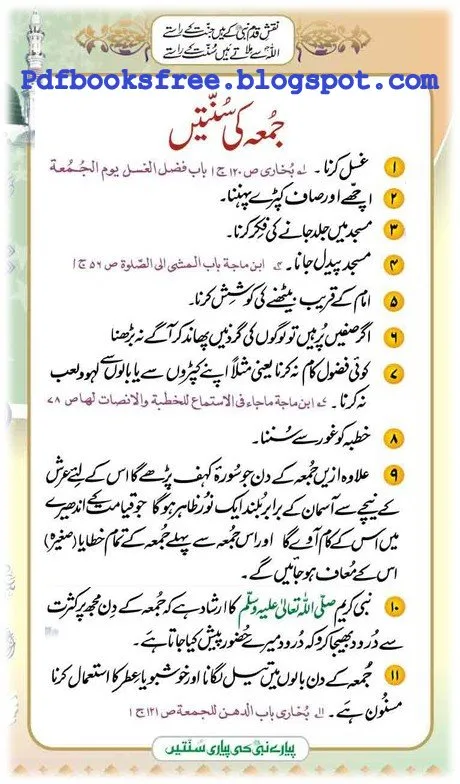 نقش قدم نبیؐ کے ہیں جنت کے راستے
اللہ سے ملاتے ہیں سنت کے راستے
Pdfbooksfree.blogspot.com
جُمعہ کی سُنّتیں
۱ غسل کرنا۔ لہ بُخاری ص ۱۲۰ ج ۱ باب فضل الغسل یوم الجُمُعة
۲ اچھے اور صاف کپڑے پہننا۔
۳ مسجد میں جلد جانے کی فکر کرنا۔
۴ مسجد پیدل جانا۔ ابن ماجة باب المشی الی الصّلوة ص ۵۶ ج ۱
۵ امام کے قریب بیٹھنے کی کوشش کرنا۔
۶ اگر صفیں پُر ہیں تو لوگوں کی گردنیں پھاند کر آگے نہ بڑھنا
۷ کوئی فضول کام نہ کرنا یعنی مثلاً اپنے کپڑوں سے یا بالوں سے لہو و لعب
نہ کرنا۔ ابن ماجة ماجاء فی الاستماع للخطبة والانصات لها ص ۷۸
۸ خطبہ کو غور سے سُننا۔
۹ علاوہ ازیں جُمعہ کے دن جو سُورۂ کہف پڑھے گا اس کے لئے عرش
کے نیچے سے آسمان کے برابر بُلند ایک نُور ظاہر ہوگا جو قیامت کے اندھیرے
میں اس کے کام آوے گا اور اس جُمعہ سے پہلے جُمعہ کے تمام خطایا (صغیرہ)
اس کے مُعاف ہو جائیں گے۔
۱۰ نبی کریم صلّی اللہ تعالیٰ علیہ وسلّم کا ارشاد ہے کہ جُمعہ کے دِن مجھ پر کثرت
سے دُرود بھیجا کرو کہ دُرود میرے حُضور پیش کیا جاتا ہے۔
۱۱ جُمعہ کے دن بالوں میں تیل لگانا اور خوشبو یا عطر کا استعمال کرنا
مسنُون ہے۔ بُخاری باب الدهن للجمعة ص ۱۲۱ ج ۱
پیارے نبیؐ کی پیاری سُنتیں